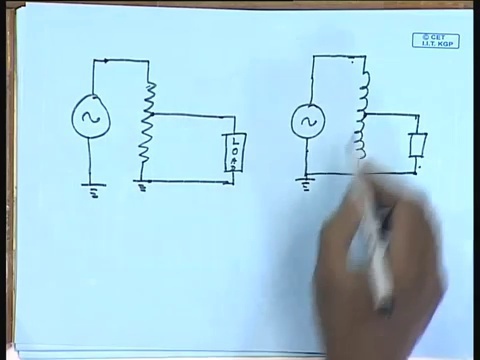 © CET
I.I.T. KGP
LOAD